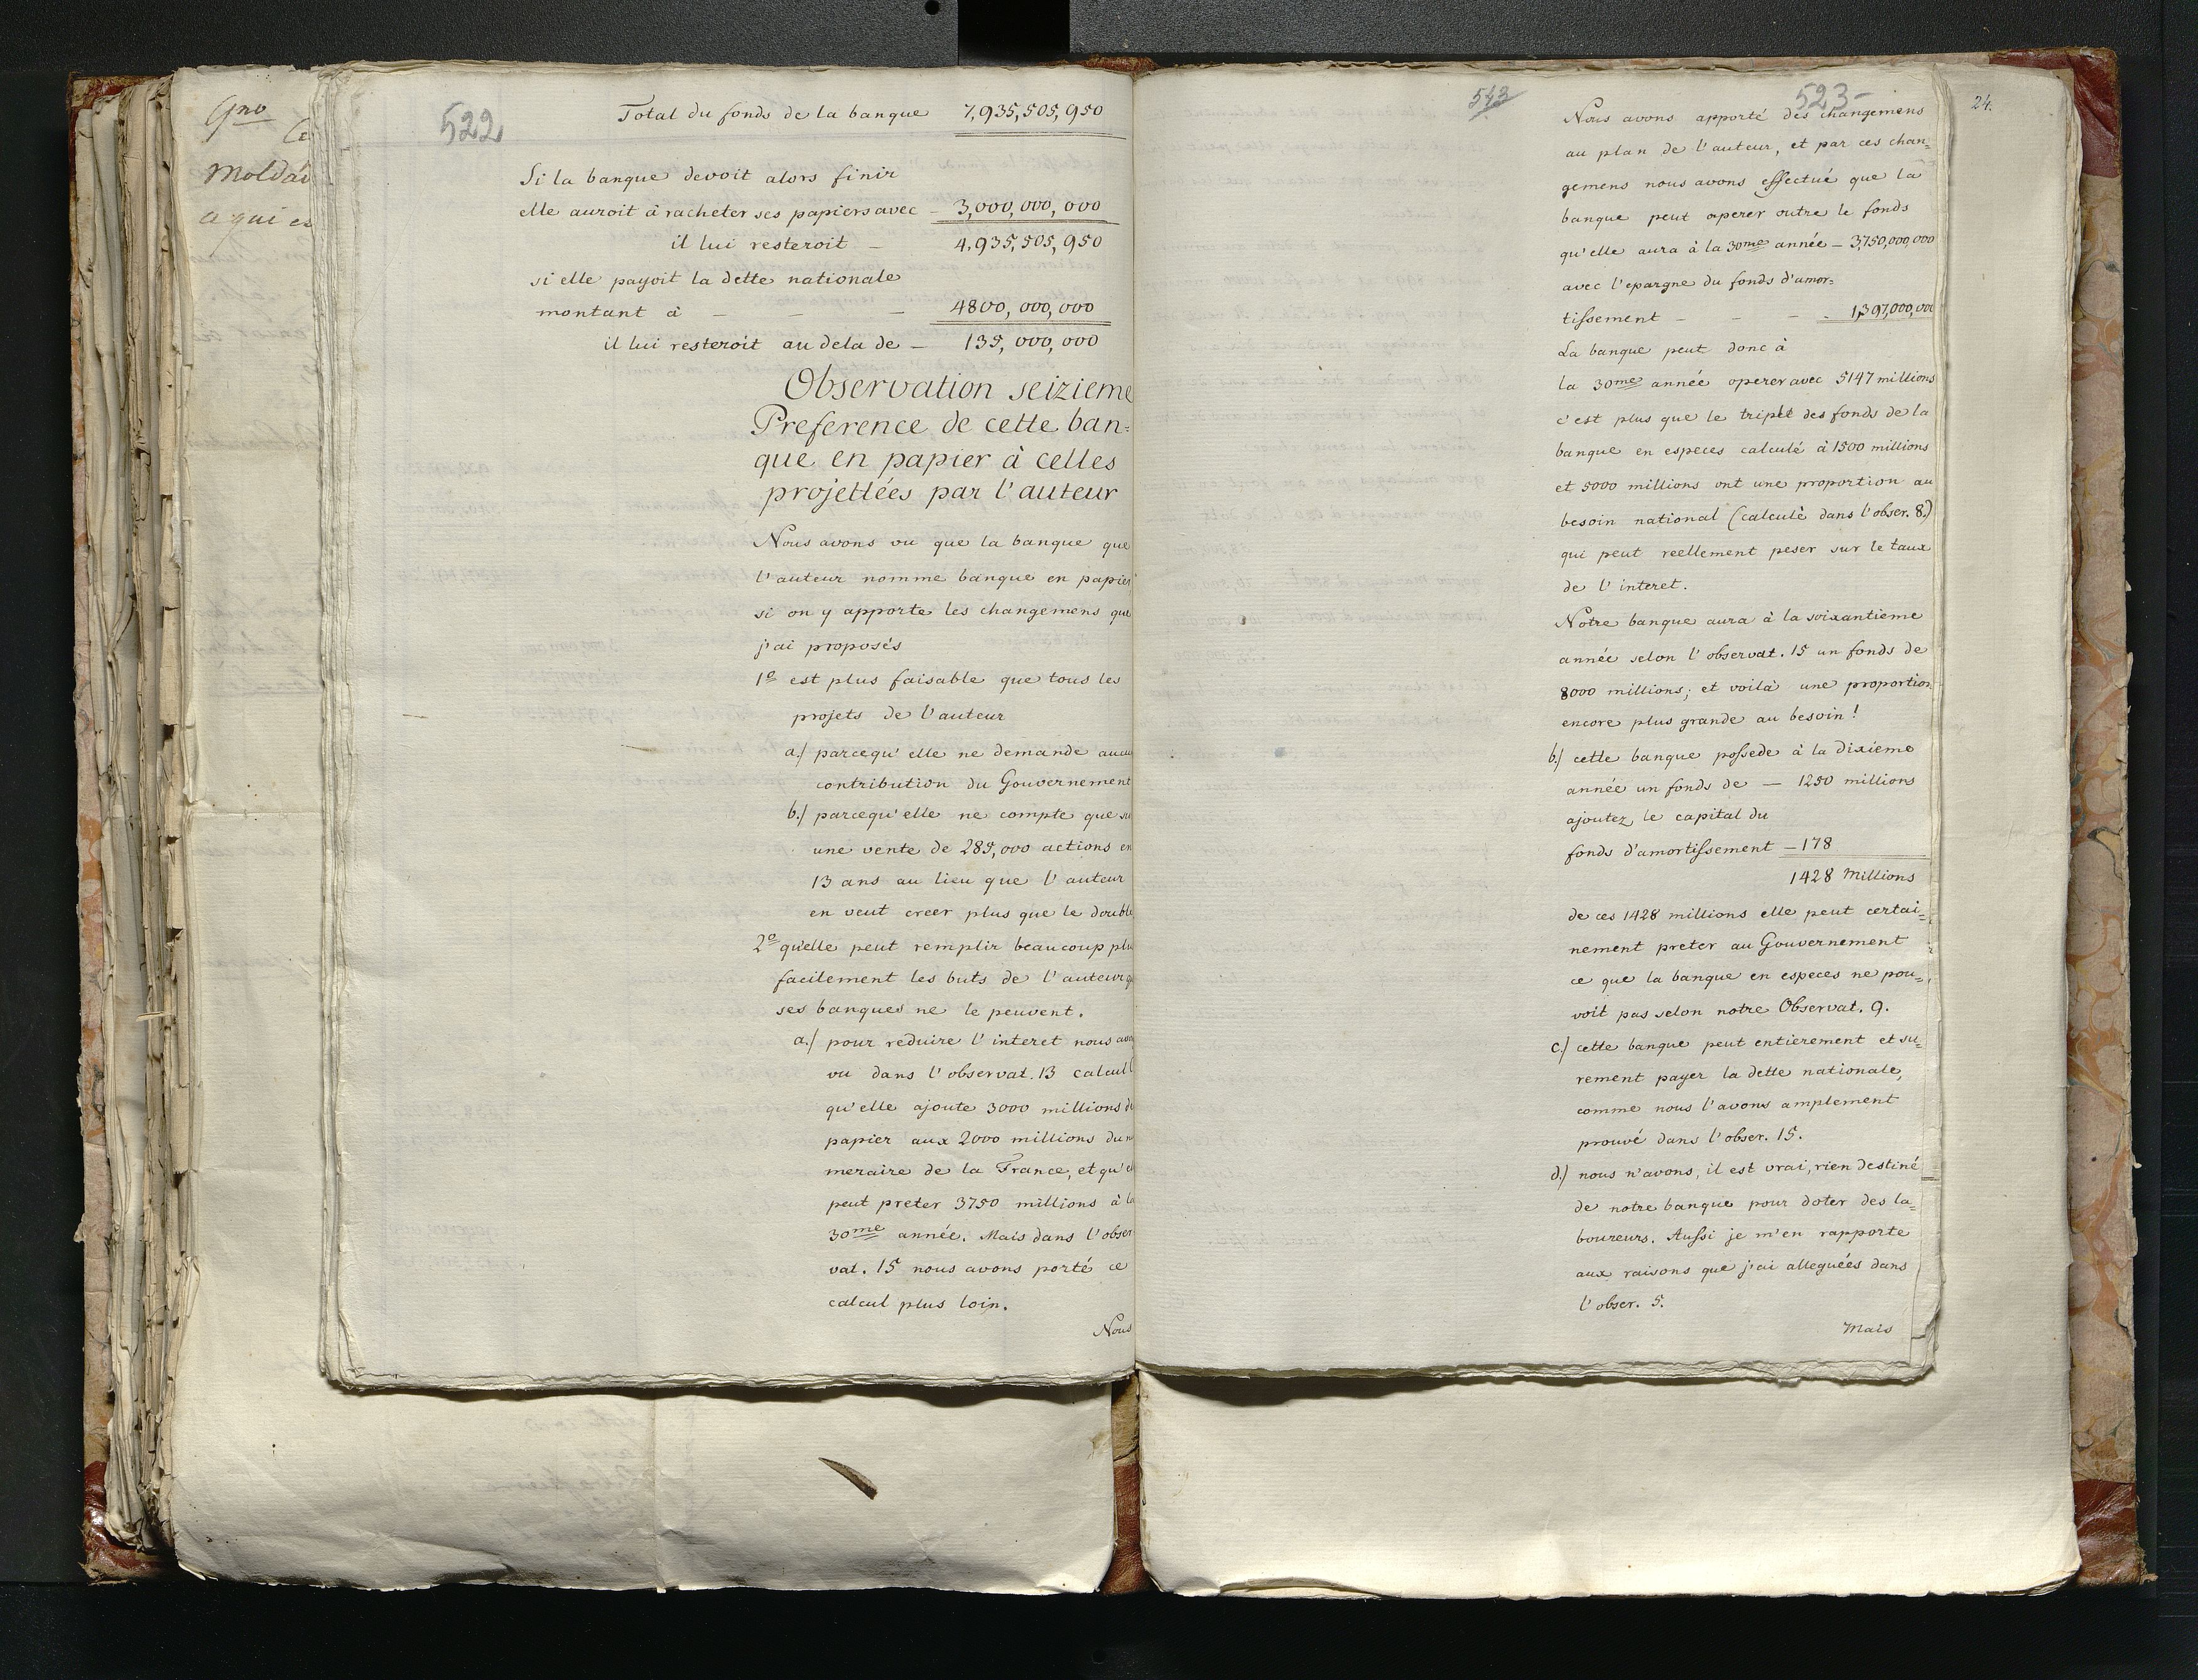 9no
Moldav
a qui es
522
Total du fonds de la banque 7,935,505,950
Si la banque devoit alors finir
elle auroit à racheter ses papiers avec – 3,000,000,000
il lui resteroit – 4,935,505,950
si elle payoit la dette nationale
montant à – – – 4800,000,000
il lui resteroit au dela de – 135,000,000
Observation seizieme
Preference de cette ban=
que en papier à celles
projettées par l'auteur
Nous avons vu que la banque que
l'auteur nomme banque en papier
si on y apporte les changemens que
j'ai proposés
1º est plus faisable que tous les
projets de l'auteur
a.) parcequ'elle ne demande aucu
contribution du Gouvernement
b.) parcequ'elle ne compte que su
une vente de 285,000 actions en
13 ans au lieu que l'auteur
en veut creer plus que le double
2º qu'elle peut remplir beaucoup plu
facilement les buts de l'auteur q
ses banques ne le peuvent.
a.) pour reduire l'interet nous avo
vu dans l'observat. 13 calcul
qu'elle ajoute 3000 millions de
papier aux 2000 millions du n
meraire de la France, et qu'el
peut preter 3750 millions à la
30me année. Mais dans l'obser
vat. 15 nous avons porté ce
calcul plus loin.
Nous
543
523
24.
Nous avons apporté des changemens
au plan de l'auteur, et par ces chan=
gemens nous avons effectué que la
banque peut operer outre le fonds
qu'elle aura à la 30me année – 3,750,000,000
avec l'epargne du fonds d'amor=
tissement – – – 1,397,000,000
La banque peut donc à
la 30me année operer avec 5147 millions
c'est plus que le triple des fonds de la
banque en especes calculé à 1500 millions
et 5000 millions ont une proportion au
besoin national (calculé dans l'obser. 8.)
qui peut reellement peser sur le taux
de l'interet.
Notre banque aura à la soixantieme
année selon l'observat. 15 un fonds de
8000 millions; et voilà une proportion
encore plus grande au besoin!
b.) cette banque possede à la dixieme
année un fonds de – 1250 millions
ajoutez le capital du
fonds d'amortissement – 178
1428 Millions
de ces 1428 millions elle peut certai=
nement preter au Gouvernement
ce que la banque en especes ne pou=
voit pas selon notre Observat. 9.
c.) cette banque peut entierement et su=
rement payer la dette nationale,
comme nous l'avons amplement
prouvé dans l'obser. 15.
d.) nous n'avons, il est vrai, rien destiné
de notre banque pour doter des la=
boureurs. Aussi je m'en rapporte
aux raisons que j'ai alleguées dans
l'obser. 5.
Mais